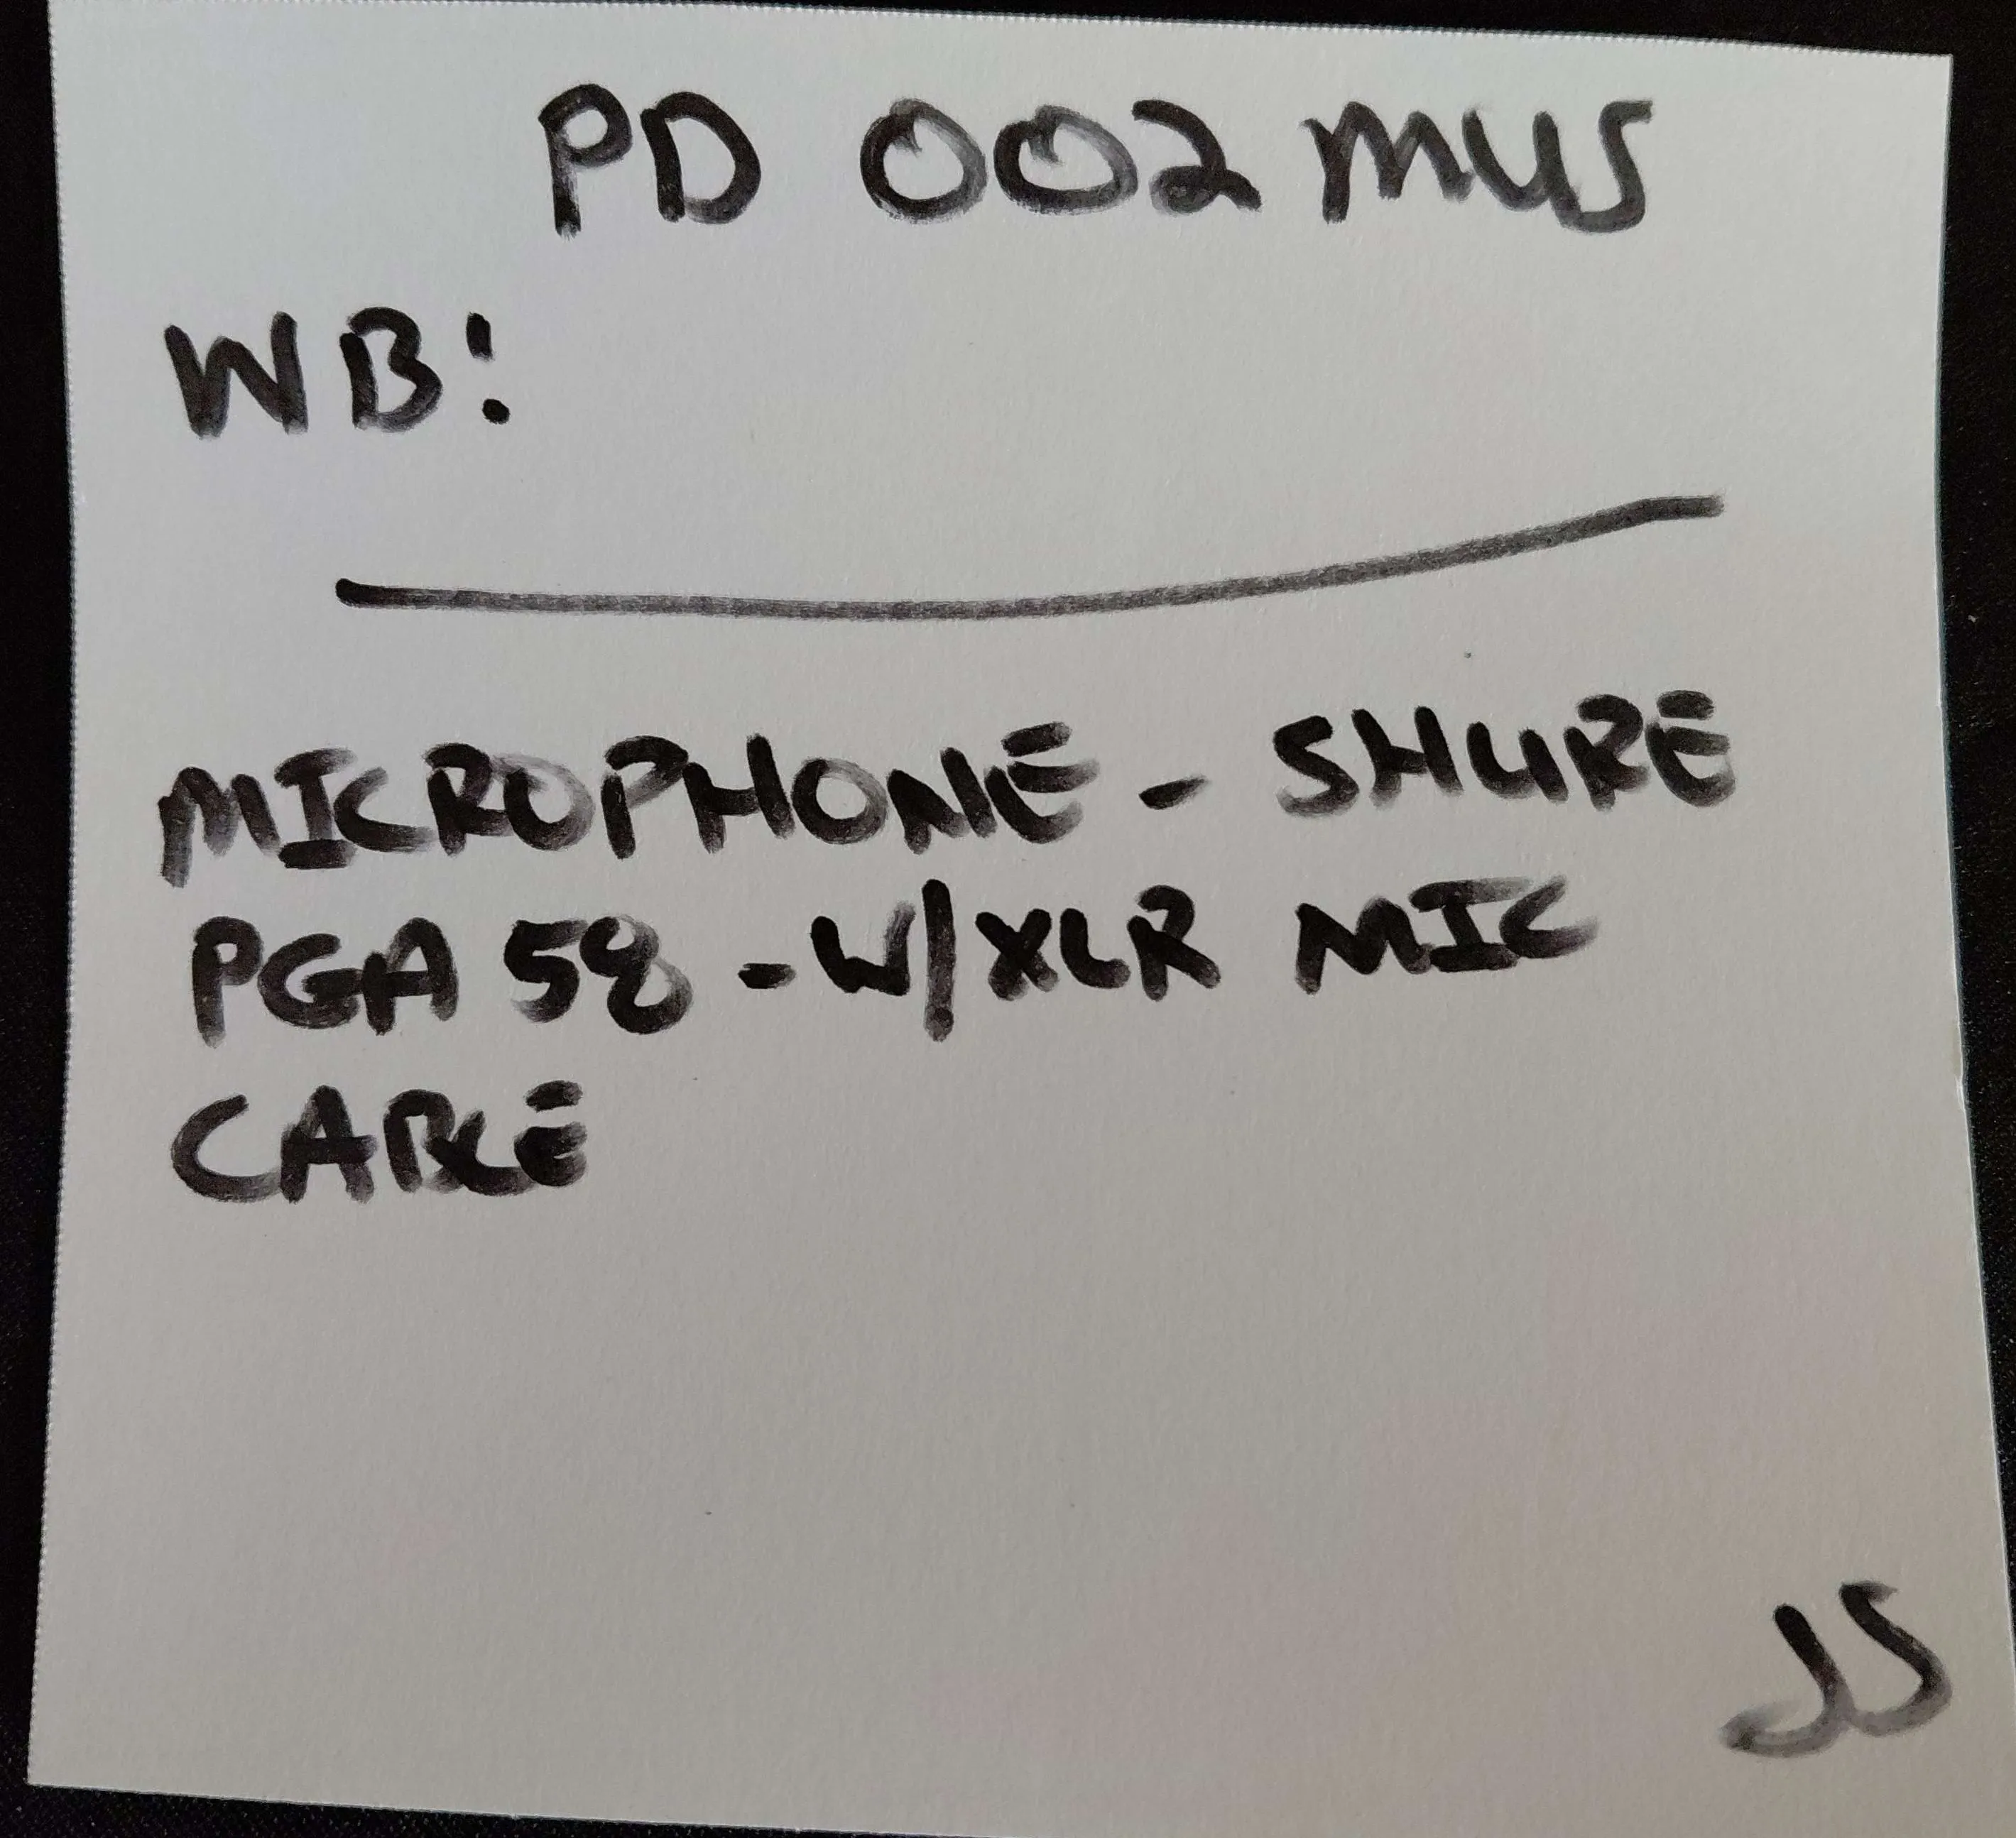 PD 002 MUS
WB:
MICROPHONE - SHURE
PGA 58 - W/XLR MIC
CABLE
JS